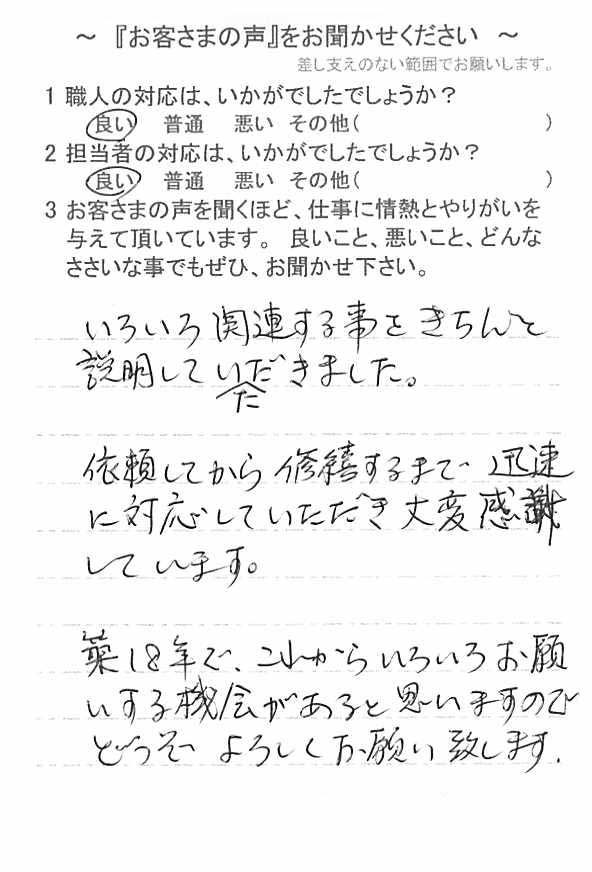 ～ 『お客さまの声』をお聞かせください ～
差し支えのない範囲でお願いします。
1 職人の対応は、いかがでしたでしょうか？
良い 普通 悪い その他( )
2 担当者の対応は、いかがでしたでしょうか？
良い 普通 悪い その他( )
3 お客さまの声を聞くほど、仕事に情熱とやりがいを
与えて頂いています。 良いこと、悪いこと、どんな
ささいな事でもぜひ、お聞かせ下さい。
いろいろ関連する事をきちんと
説明していただきました。
依頼してから修繕するまで迅速
に対応していただき大変感謝
しています。
築18年で、これからいろいろお願
いする機会があると思いますので
どうぞよろしくお願い致します.